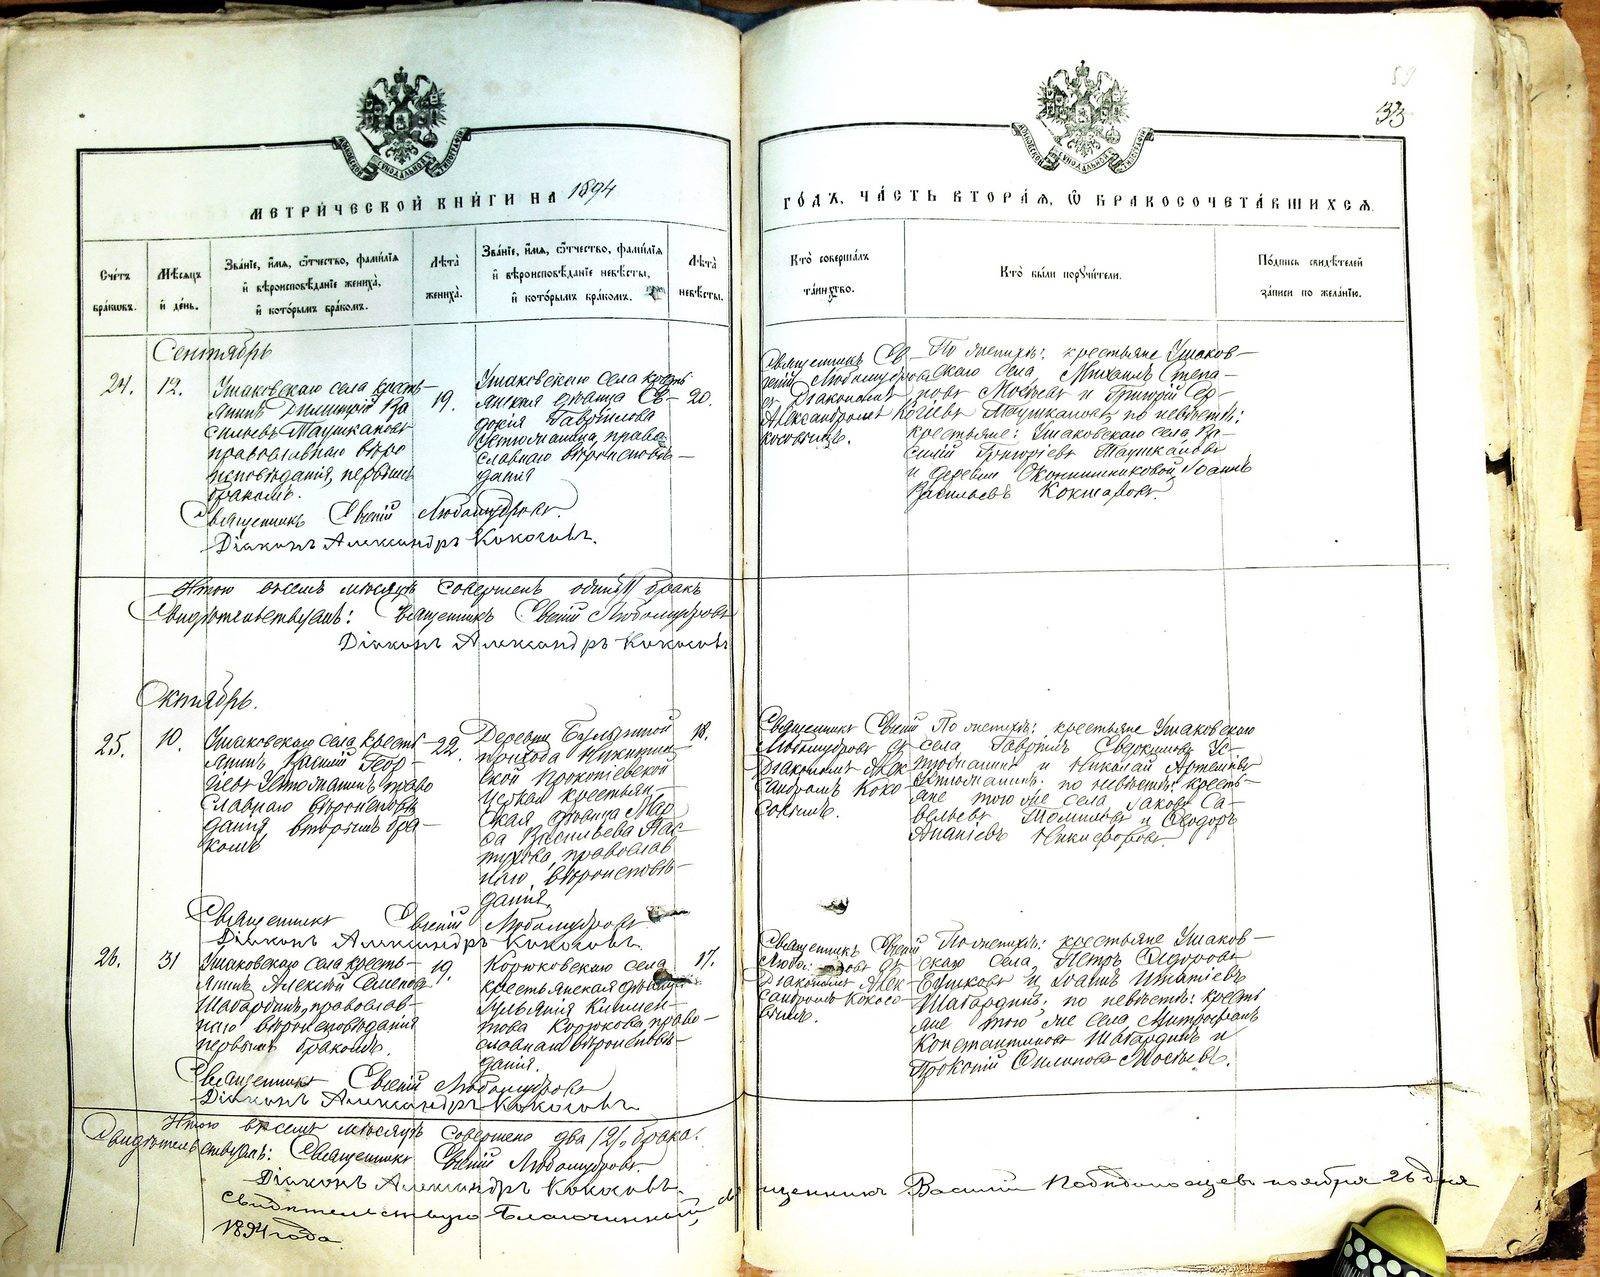 59
33
МОСКОВСКОЙ СѴНОДАЛЬНОЙ ТИПОГРАФІИ
МОСКОВСКОЙ СѴНОДАЛЬНОЙ ТИПОГРАФІИ
МЕТРИ́ЧЕСКОЙ КНИ́ГИ НА 1894
ГО́ДЪ, ЧА́СТЬ ВТОРА́Я, Ѡ҆ БРАКОСОЧЕТА́ВШИХСЯ.
Сче́тъ
бра́ковъ.
Мѣ́сяцъ
и҆ де́нь.
Зва́нїе, и҆́мя, ѻ҆́тчество, фами́лїя
и҆ вѣроисповѣ́данїе жениха̀,
и҆ кото́рымъ бра́комъ.
Лѣ́та
жениха̀.
Зва́нїе, и҆́мя, ѻ҆́тчество, фами́лїя
и҆ вѣроисповѣ́данїе невѣ́сты,
и҆ кото́рымъ бра́комъ.
Лѣ́та
невѣ́сты.
Кто̀ соверша́лъ
та́инство.
Кто̀ бы́ли поручи́тели.
По́дпись свидѣ́телей
за́писи по жела́нїю.
Сентябрь
24.
12.
Ушаковскаго села кресть-
янинъ Димитрій Ва
сильевъ Таушкановъ
православнаго вѣро
исповѣданія, первымъ
бракомъ.
19.
Ушаковскаго села кресть
янская дѣвица Ев-
докія Гаврилова
Устюжанина, право
славнаго вѣроисповѣ-
данія
20.
Священникъ Ев-
гений Любомудровъ
съ Діакономъ
Александромъ Ко
косовымъ.
По женихѣ: крестьяне Ушаков-
скаго села, Михаилъ Степа-
новъ Мосѣевъ и Григорій Сер-
гѣевъ Таушкановъ, по невѣстѣ:
крестьяне: Ушаковскаго села, Ва-
силій Григорьевъ Таушкановъ
и деревни Оконишниковой Іоаннъ
Васильевъ Кокшаровъ.
Священникъ Евгеній Любомудровъ.
Діаконъ Александръ Кокосовъ.
Итого въ семъ мѣсяцѣ совершенъ одинъ /1/ бракъ
Свидѣтельствуемъ: Священникъ Евгеній Любомудровъ
Діаконъ Александръ Кокосовъ
Октябрь.
25.
10.
Ушаковскаго села кресть-
янинъ Василій Геор-
гіевъ Устюжанинъ, право
славнаго вѣроисповѣ
данія, вторымъ бра-
комъ
22.
Деревни
прихода
ской Прокопіевской
церкви крестьян-
ская дѣвица Мар
ѳа Васильева Пас-
тухова, православ
наго вѣроисповѣ-
данія.
18.
Священникъ Евгеній
Любомудровъ съ
Діакономъ Алек
сандромъ Коко-
совымъ.
По женихѣ: крестьяне Ушаковскаго
села Гавріилъ Евдокимовъ Ус-
тюжанинъ и Николай Артемьевъ
Устюжанинъ: по невѣстѣ: кресть-
яне того же села, Іаковъ Са-
вельевъ Томиловъ и Ѳеодоръ
Ананіевъ Никифоровъ.
Священникъ Евгеній Любомудровъ
Діаконъ Александръ Кокосовъ.
26.
31
Ушаковскаго села кресть-
янинъ Алексій
Шабардинъ, православ-
наго вѣроисповѣданія
первымъ бракомъ.
19.
Корюковскаго села
крестьянская дѣвица
Ульянія Климен-
това Корюкова, право-
славнаго вѣроисповѣ-
данія.
17.
Священникъ Евгеній
съ
Діакономъ Алек-
сандромъ Кокосо-
вымъ.
По женихѣ: крестьяне Ушаков-
скаго села, Петръ Сидоровъ
и Іоаннъ Игнатіевъ
Шабардинъ: по невѣстѣ: кресть
яне того же села Митрофанъ
Константиновъ Шабардинъ и
Прокопій Филиповъ Мосѣевъ.
Священникъ Евгеній Любомудровъ
Діаконъ Александръ Кокосовъ
Итого въ семъ мѣсяцѣ совершено два /2/ брака.
Свидѣтельствуемъ: Священникъ Евгеній Любомудровъ.
Діаконъ Александръ Кокосовъ.
Свидѣтельствую Благочинный, священникъ Василій Побѣдоносцевъ ноября 26 дня
1894 года.